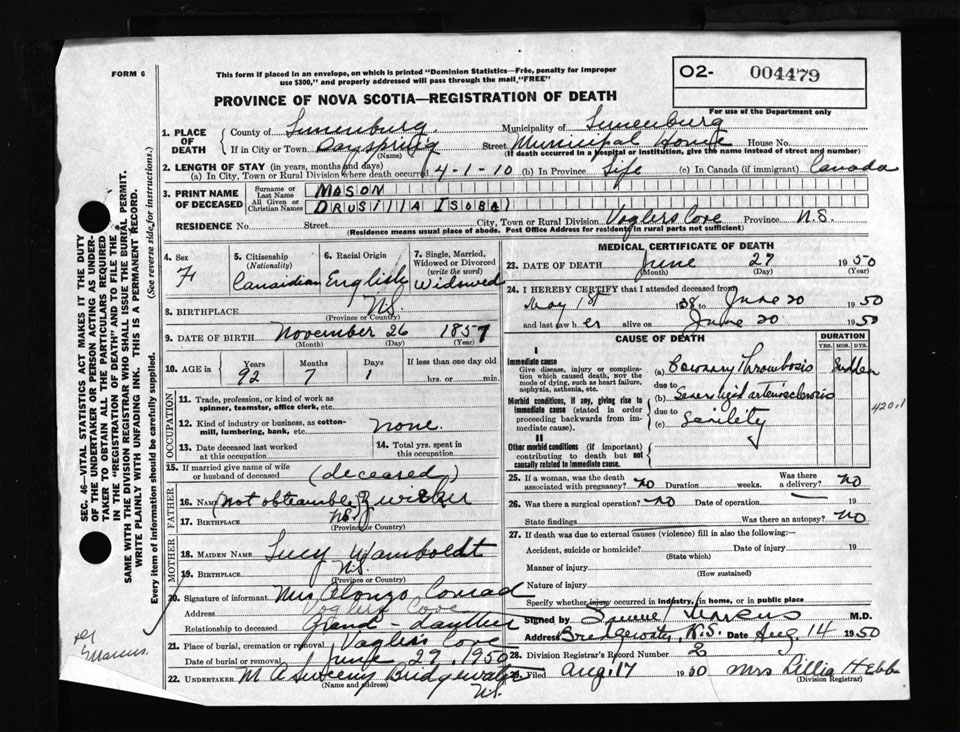 FORM 6
This form if placed in an envelope, on which is printed "Dominion Statistics—Free, penalty for improper
use $300," and properly addressed will pass through the mail "FREE"
O2- 004479
For use of the Department only
PROVINCE OF NOVA SCOTIA—REGISTRATION OF DEATH
1. PLACE OF DEATH
County of Lunenburg Municipality of Lunenburg
If in City or Town Dayspring Street Municipal House House No.
(Name) (If death occurred in a hospital or institution, give the name instead of street and number)
2. LENGTH OF STAY (in years, months and days)
(a) In City, Town or Rural Division where death occurred 4-1-10 (b) In Province Life (c) In Canada (if immigrant) Canada
3. PRINT NAME OF DECEASED
Surname or Last Name MASON
All Given or Christian Names DRUSILLA ISOBAL
RESIDENCE No. Street City, Town or Rural Division Voglers Cove Province N.S.
(Residence means usual place of abode. Post Office Address for residents in rural parts not sufficient)
4. Sex F
5. Citizenship (Nationality) Canaidian
6. Racial Origin English
7. Single, Married, Widowed or Divorced (write the word) Widowed
8. BIRTHPLACE N.S.
(Province or Country)
9. DATE OF BIRTH November 26 1857
(Month) (Day) (Year)
10. AGE in Years 92 Months 7 Days 1 If less than one day old
hrs. or min.
OCCUPATION
11. Trade, profession, or kind of work as
spinner, teamster, office clerk, etc.
12. Kind of industry or business, as cotton-
mill, lumbering, bank, etc. none.
13. Date deceased last worked at this occupation
14. Total yrs. spent in this occupation
15. If married give name of wife
or husband of deceased (deceased)
FATHER
16. NAME (not obtainable) Zwicker
17. BIRTHPLACE N.S.
(Province or Country)
MOTHER
18. MAIDEN NAME Lucy Wamboldt
19. BIRTHPLACE N.S.
(Province or Country)
20. Signature of informant Mrs Alonzo Conrad
Address Voglers Cove
Relationship to deceased Grand-daughter
21. Place of burial, cremation or removal Voglers Cove
Date of burial or removal June 29, 1950
22. UNDERTAKER M A Sweeny Bridgewater
(Name and address) N.S.
MEDICAL CERTIFICATE OF DEATH
23. DATE OF DEATH June 27 1950
(Month) (Day) (Year)
24. I HEREBY CERTIFY that I attended deceased from
May 1st 1938 to June 20 1950
and last saw her alive on June 20 1950
CAUSE OF DEATH
DURATION
YRS. MOS. DYS.
I
Immediate cause
Give disease, injury or complica-
tion which caused death, NOT the
mode of dying, such as heart failure,
asphyxia, asthenia, etc.
(a) Coronary Thrombosis Sudden
due to
Morbid conditions, if any, giving rise to
immediate cause (stated in order
proceeding backwards from im-
mediate cause).
(b) arteriosclerosis
due to
(c) Senility
420.1
II
Other morbid conditions (if important)
contributing to death but not
causally related to immediate cause.
25. If a woman, was the death
associated with pregnancy? no Duration weeks. Was there
a delivery? no
26. Was there a surgical operation? no Date of operation 19
State findings Was there an autopsy? no
27. If death was due to external causes (violence) fill in also the following:—
Accident, suicide or homicide? Date of injury 19
(State which)
Manner of injury
(How sustained)
Nature of injury
Specify whether injury occurred in industry, in home, or in public place
Signed by Marcus M.D.
Address Bridgewater, N.S. Date Aug 14 1950
28. Division Registrar's Record Number 2
29. Filed Aug. 17 1950 Mrs Lillia Hebb
(Division Registrar)
SEC. 46—VITAL STATISTICS ACT MAKES IT THE DUTY
OF THE UNDERTAKER OR PERSON ACTING AS UNDER-
TAKER TO OBTAIN ALL THE PARTICULARS REQUIRED
IN THE "REGISTRATION OF DEATH" AND TO FILE THE
SAME WITH THE DIVISION REGISTRAR WHO SHALL ISSUE THE BURIAL PERMIT.
WRITE PLAINLY WITH UNFADING INK. THIS IS A PERMANENT RECORD.
Every item of information should be carefully supplied. (See reverse side for instructions.)
Marcus.